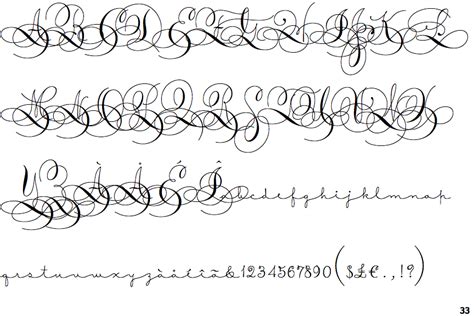 ABCDEFGHIJKL
MNOPQRSTUVWX
YZÀÅÉÎabcdefghijklmnop
qrstuvwxyzàåéîõ&1234567890($£€.,!?)
33